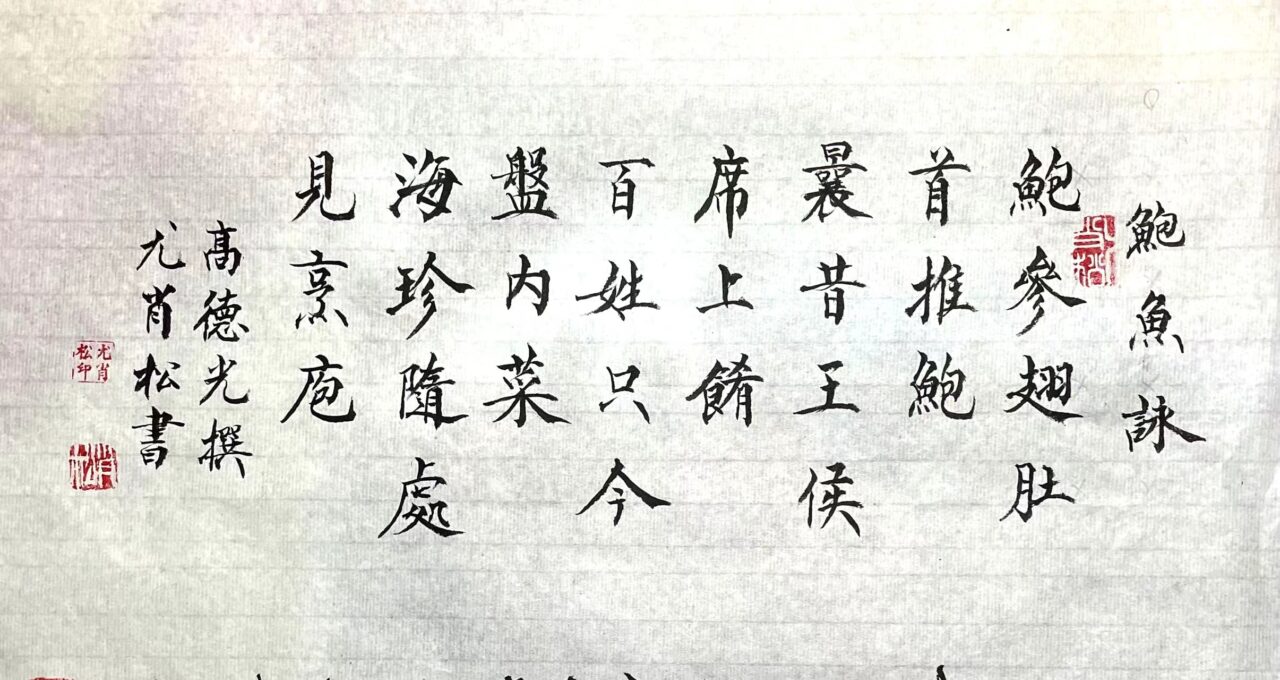 鮑魚詠
鮑參翅肚
首推鮑
曩昔王侯
席上餚
百姓只今
盤内菜
海珍隨處
見烹庖
高德光撰
尤肖松書
尤肖松印